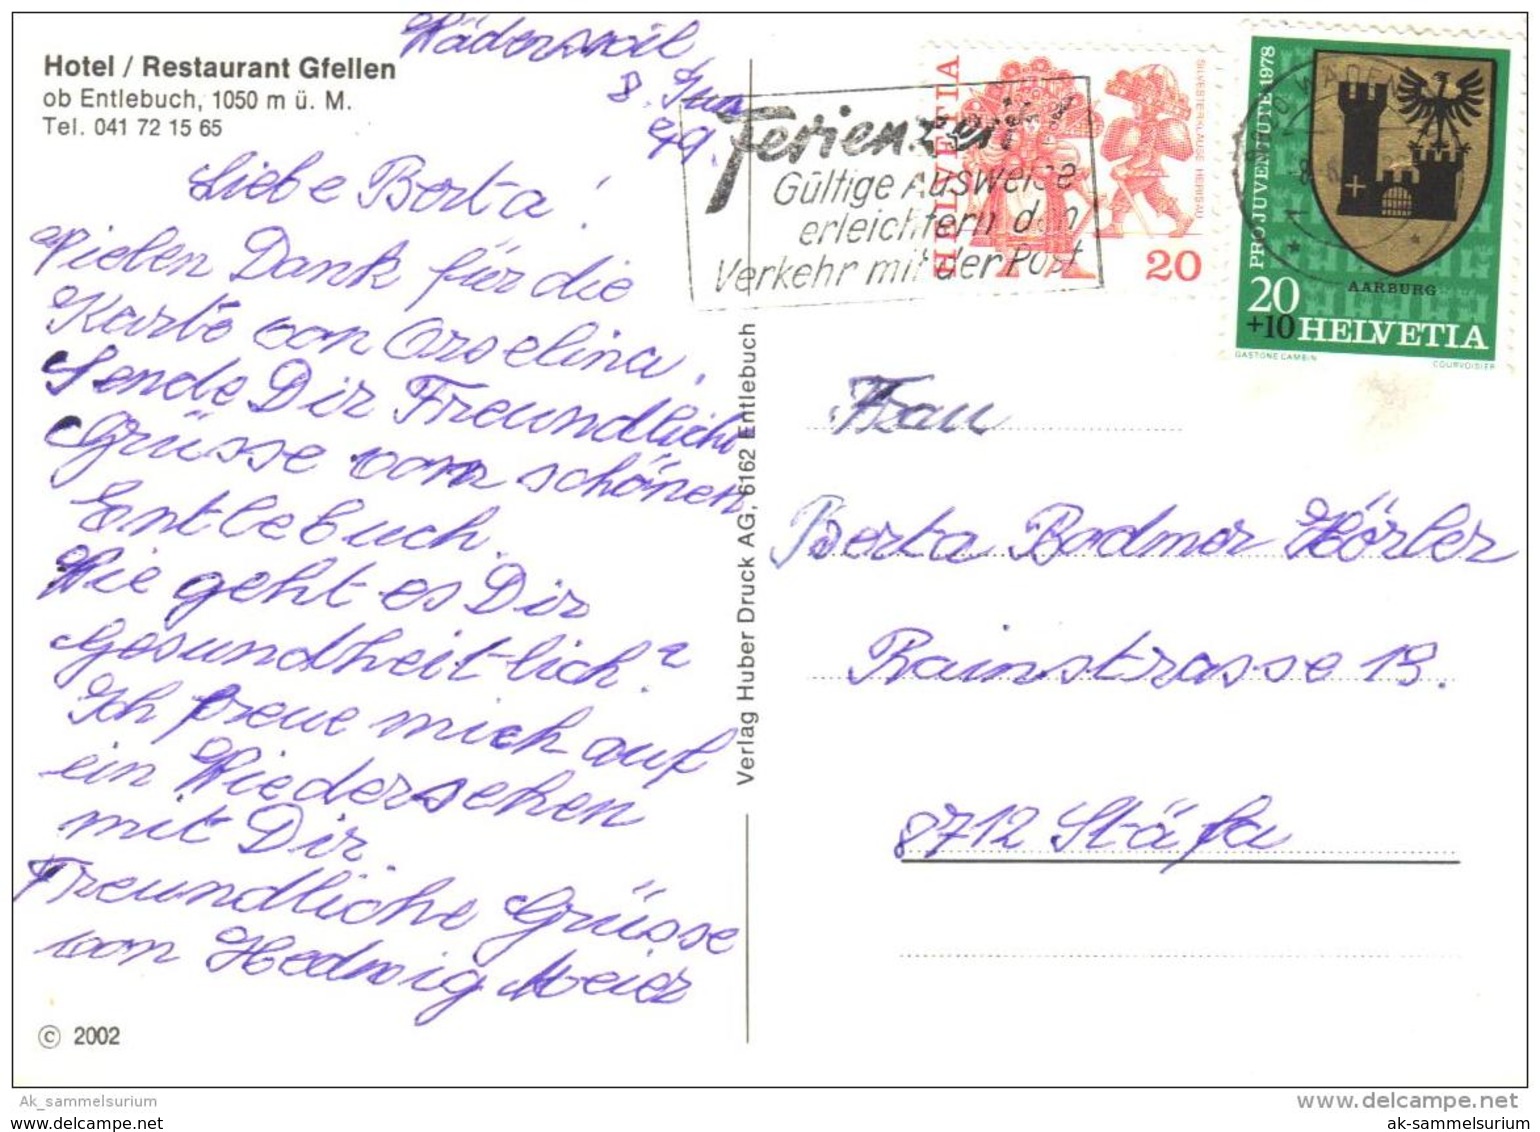 Hotel / Restaurant Gfellen
ob Entlebuch, 1050 m ü. M.
Tel. 041 72 15 65
Wädenswil
8. Jun
79.
Liebe Berta!
Vielen Dank für die
Karte von Orselina.
Sende Dir Freundliche
Grüsse vom schönen
Entlebuch.
Wie geht es Dir
Gesundheitlich?
Ich freue mich auf
ein Wiedersehen
mit Dir.
Freundliche Grüsse
von Hedwig Meier
© 2002
Verlag Huber Druck AG, 6162 Entlebuch
Ferienzeit
Gültige Ausweise
erleichtern den
Verkehr mit der Post
HELVETIA
SILVESTERKLÄUSE HERISAU
20
PRO JUVENTUTE 1978
AARBURG
20
+10 HELVETIA
GASTONE CAMBIN
COURVOISIER
Frau
Berta Bodmer Hörler
Rainstrasse 19.
8712 Stäfa
Ak_sammelsurium
www.delcampe.net
www.ak-sammelsurium.de
ak-sammelsurium